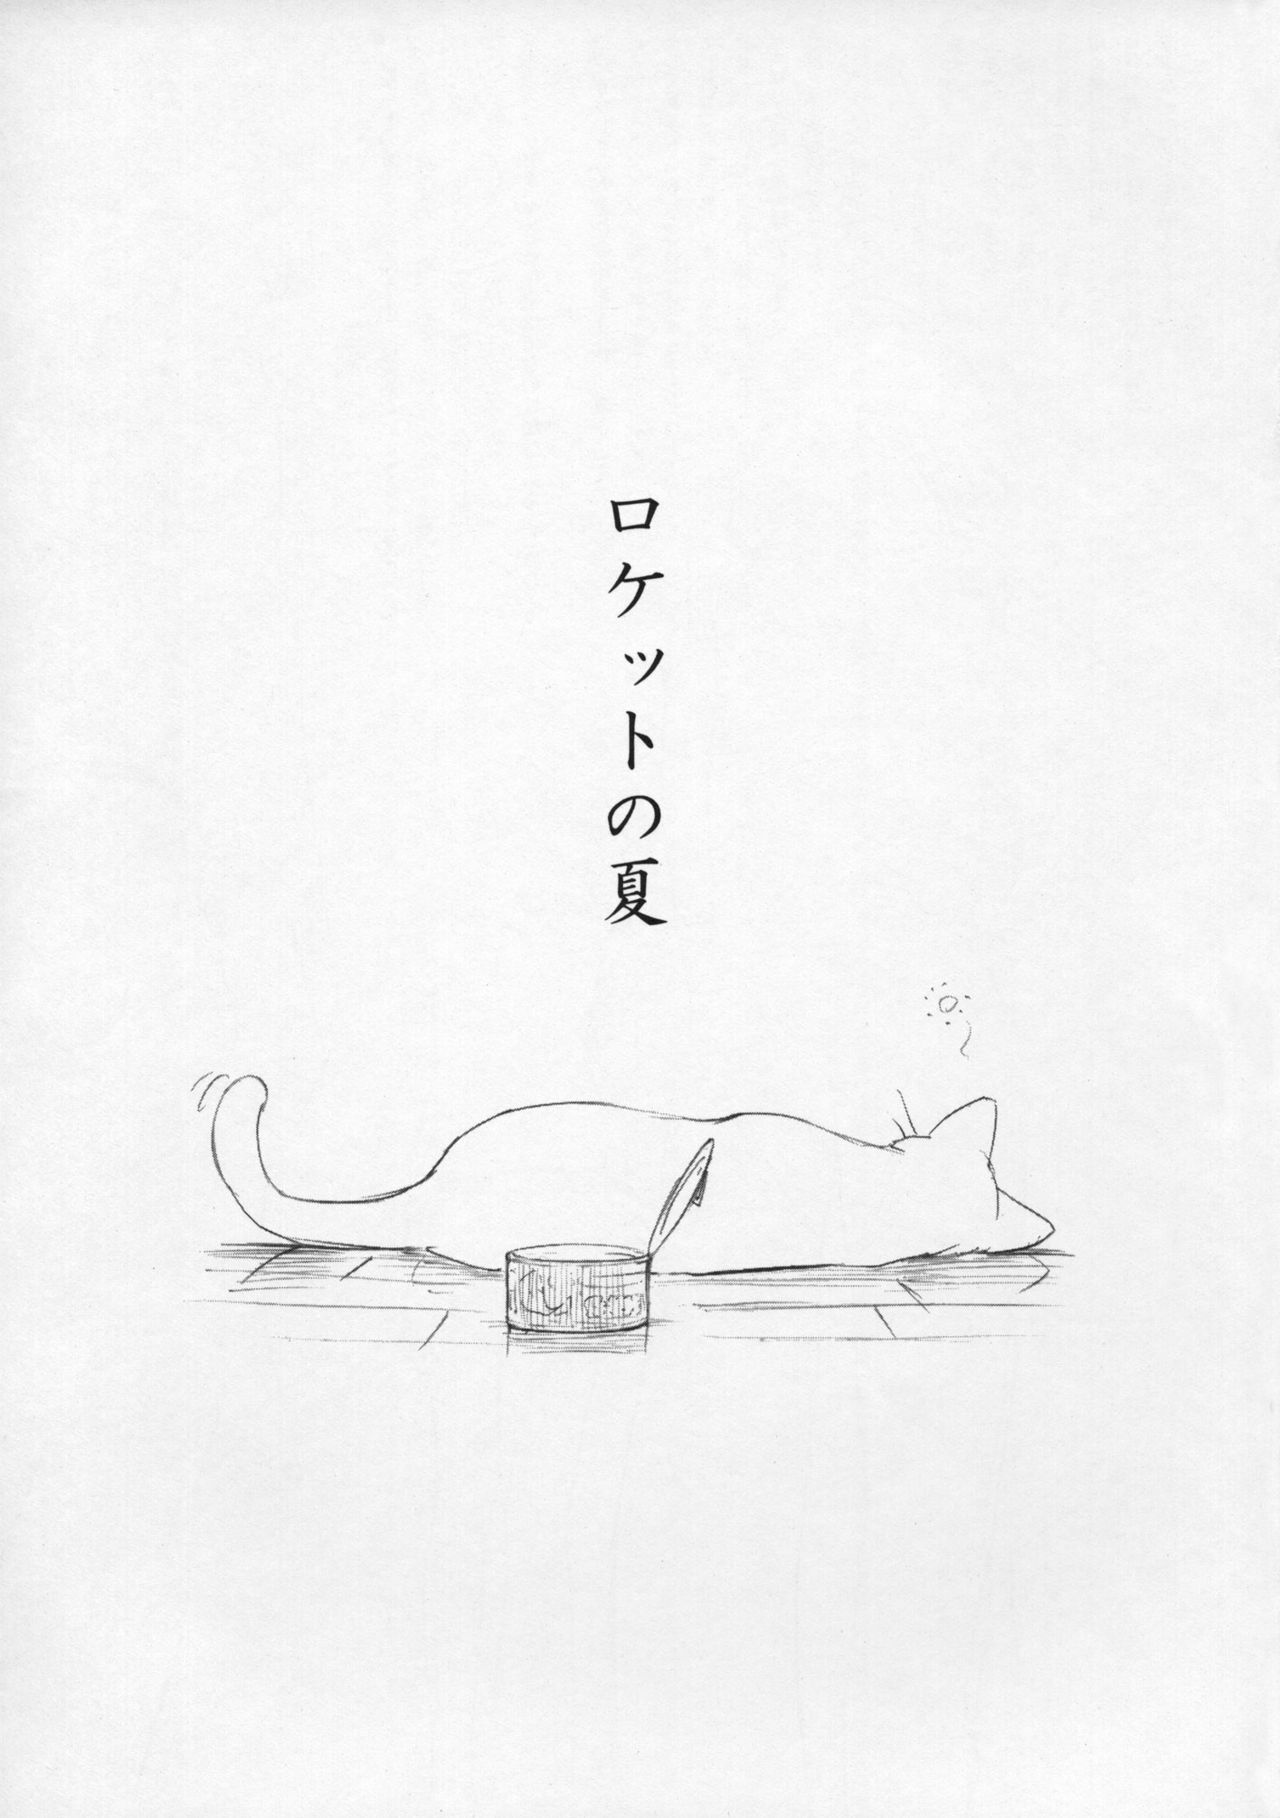 ロケットの夏